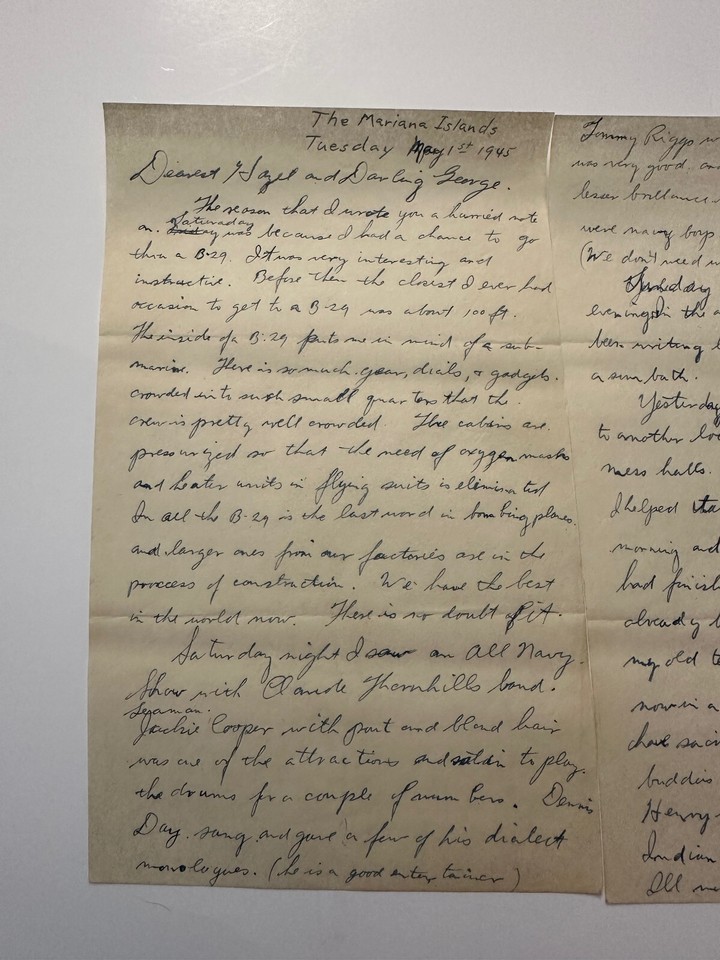 The Mariana Islands
Tuesday May 1st 1945
Dearest Hazel and Darling George.
The reason that I wrote you a hurried note
on. Saturaday was because I had a chance to go
thru a B-29. It was very interesting and
instructive. Before then the closest I ever had
occasion to get to a B-29 was about 100 ft.
The inside of a B-29 puts me in mind of a sub-
marine. There is so much gear, dials, & gadgets.
crowded into such small quarters that the.
crew is pretty well crowded. The cabins are.
pressurized so that the need of oxygen masks
and heater units in flying suits is eliminated
In all the B-29 is the last word in bombing planes.
and larger ones from our factories are in the
proccess of construction. We have the best
in the world now. There is no doubt of it.
Saturday night I saw an All Navy.
Show with Claude Thornhills band.
Seaman.
Jackie Cooper with pout and blond hair
was one of the attractions and sat in to play.
the drums for a couple of numbers. Dennis
Day. sang and gave a few of his dialect
monologues. (he is a good entertainer)
Tommy Riggs
was very good. and
lesser brilliance
were navy boys
(We don't need
Yesterday
evening in the
been writing
a sun bath.
Yesterday
to another
mess halls.
I helped
morning and
had finish
already
my old
now in a
have
buddies
Henry
Indian
All